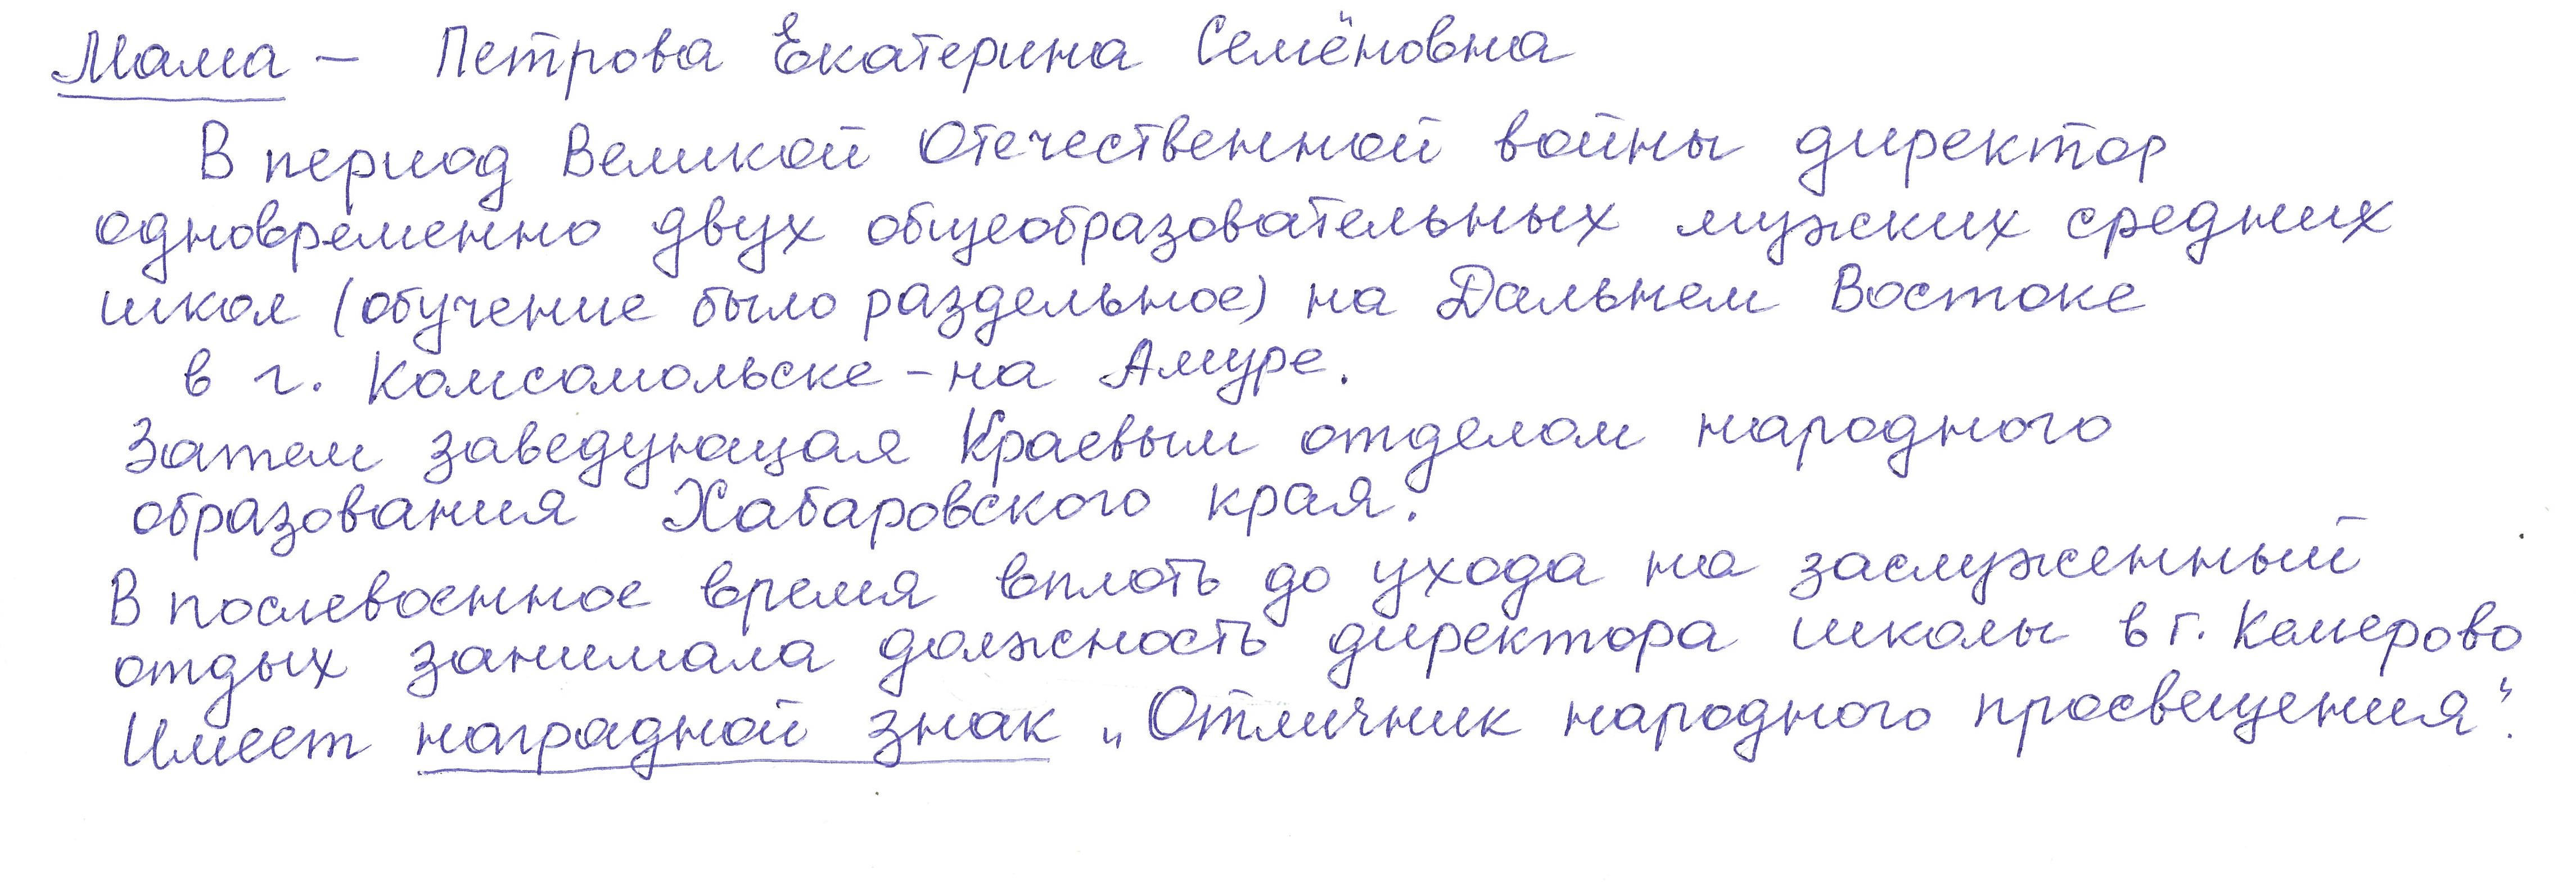 Мама – Петрова Екатерина Семёновна
В период Великой Отечественной войны директор
одновременно двух общеобразовательных мужских средних
школ (обучение было раздельное) на Дальнем Востоке
в г. Комсомольске-на Амуре.
Затем заведующая Краевым отделом народного
образования Хабаровского края.
В послевоенное время вплоть до ухода на заслуженный
отдых занимала должность директора школы в г. Кемерово
Имеет наградной знак „Отличник народного просвещения“.